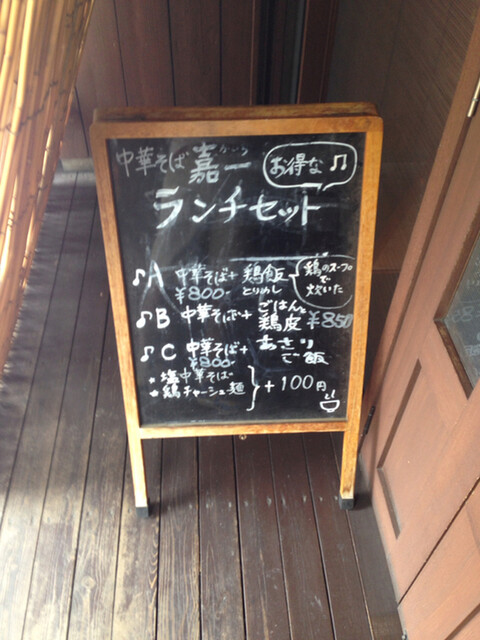 中華そば 嘉一 お得な♫
ランチセット
♪A 中華そば+ 鶏飯 鶏のスープで炊いた
¥800- とりめし
♪B 中華そば+ ごはんと鶏皮 ¥850
♪C 中華そば+ あさりご飯
¥800-
★塩中華そば
★鶏チャーシュー麺 } +100円